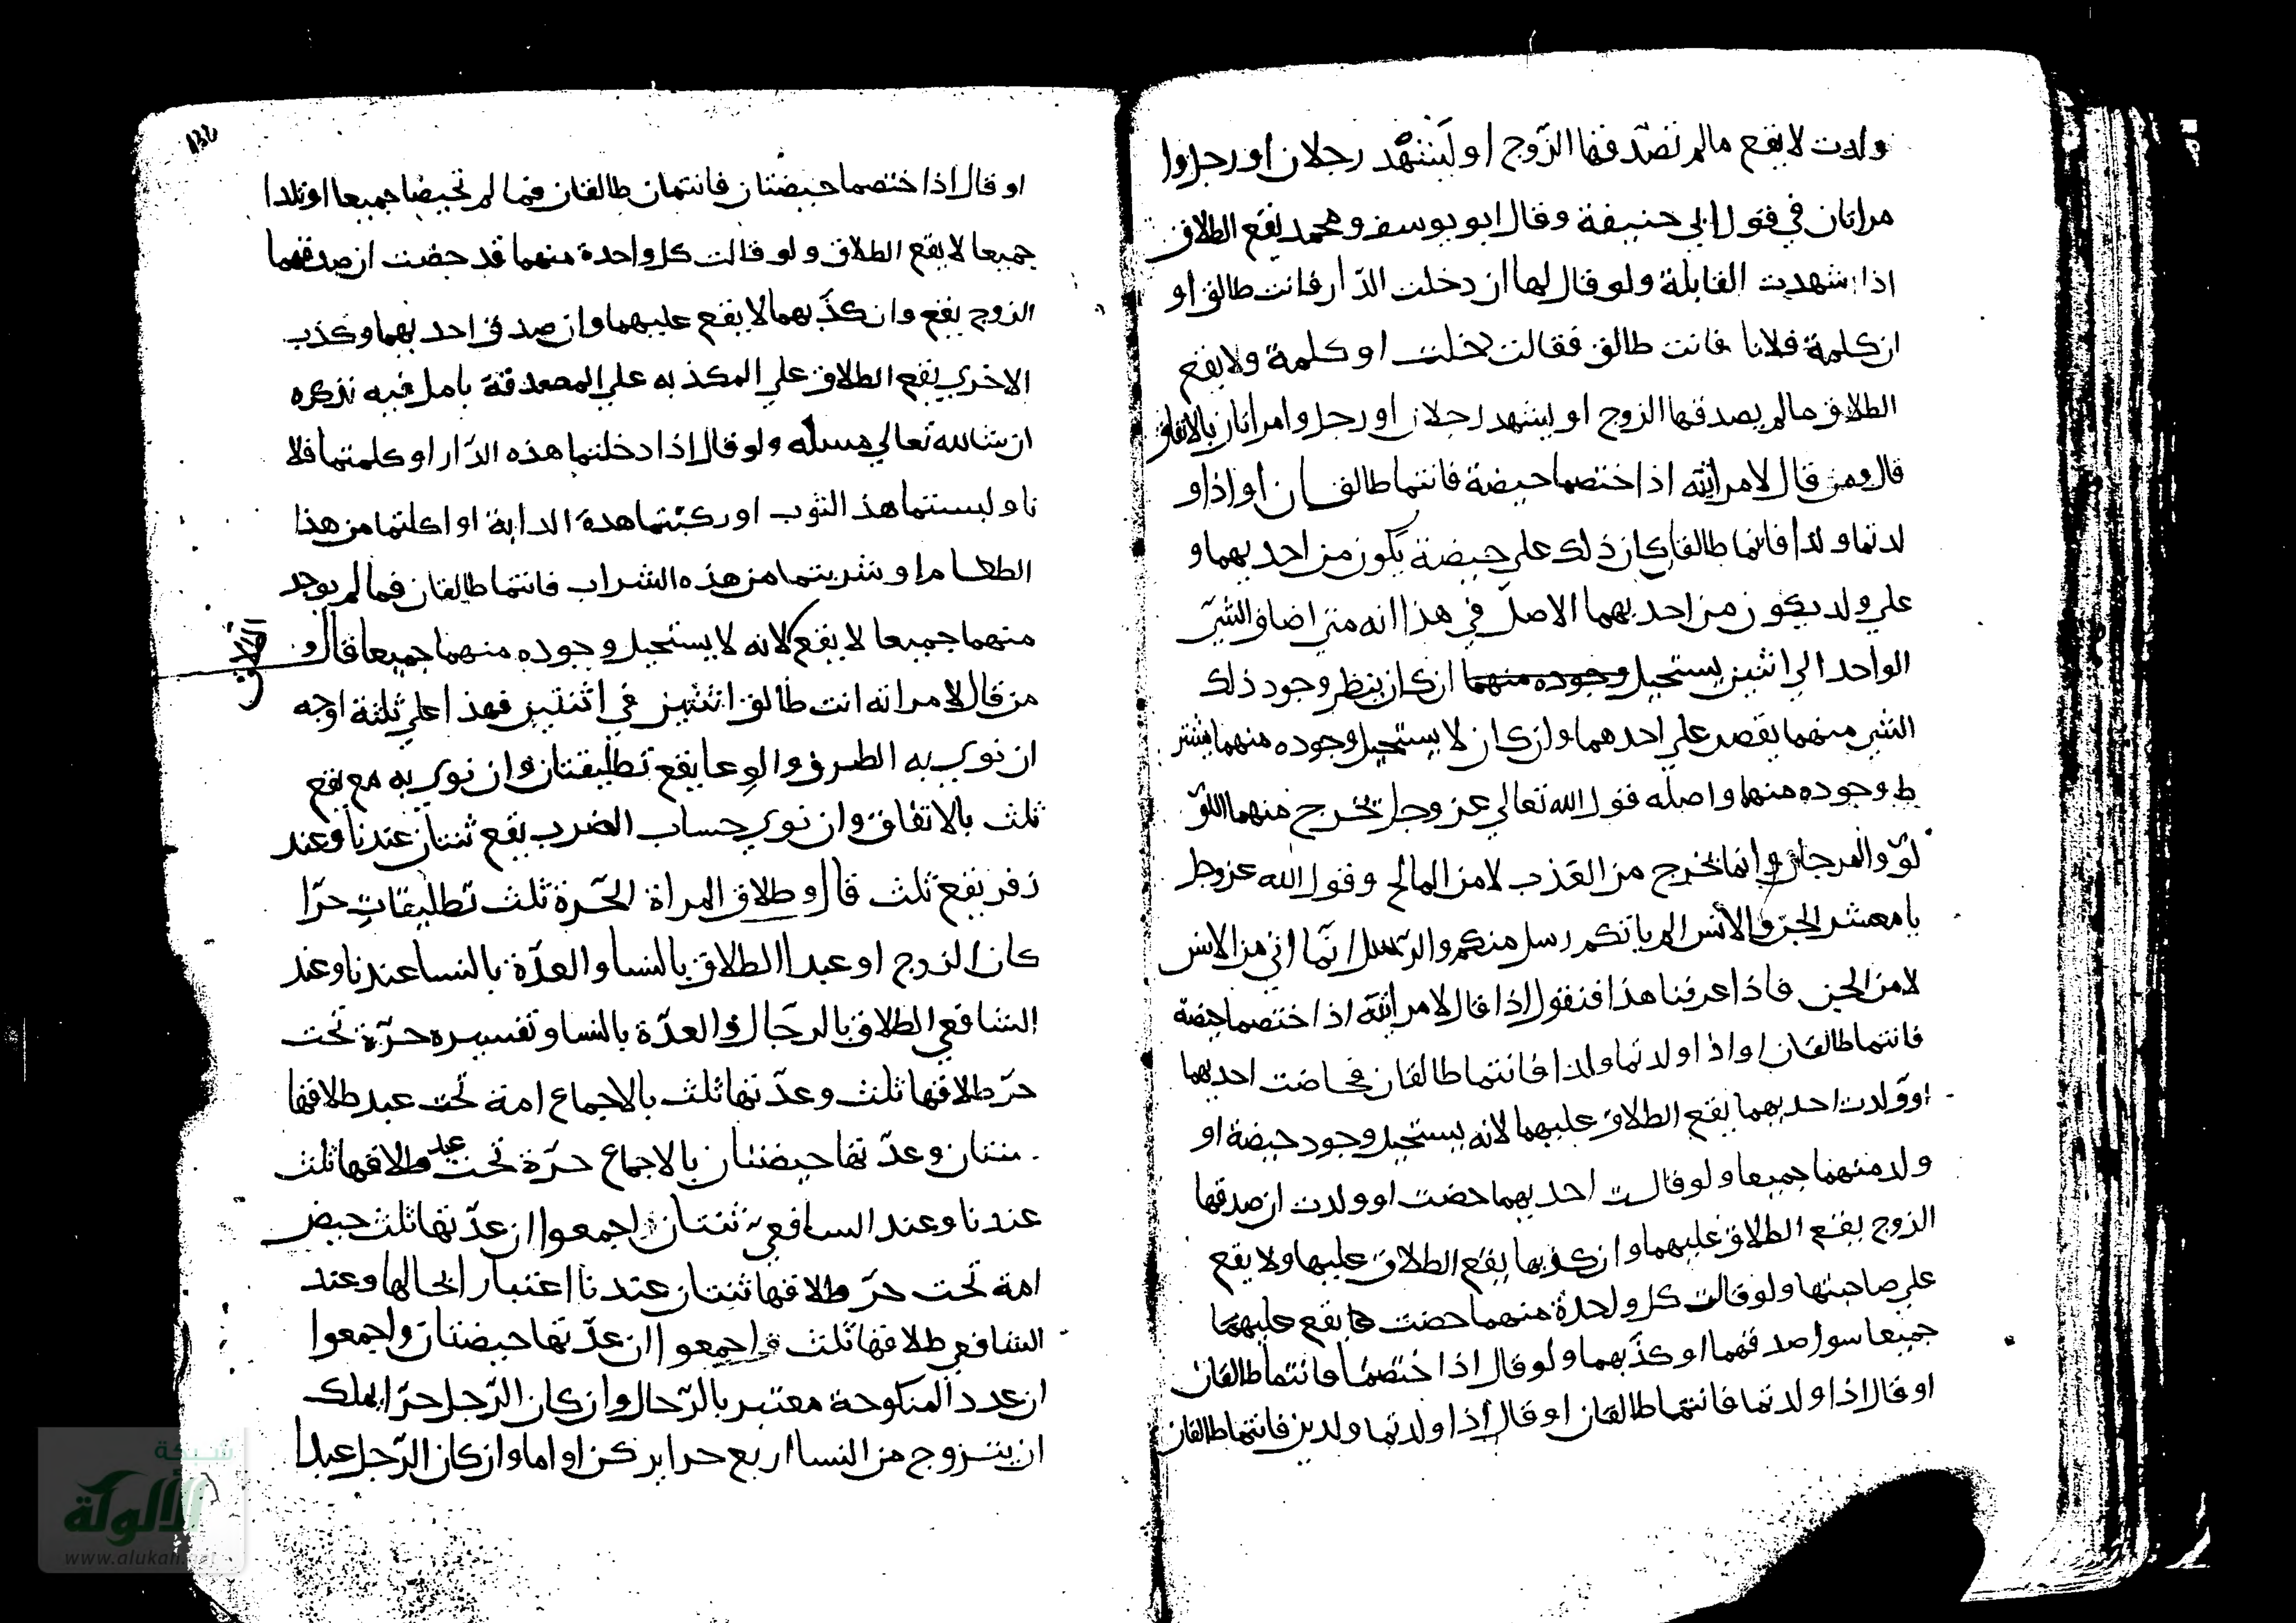 ولدت لا يقع مالم تصدقها الزّوج او ليشهد رجلان او رجل وا
مراتان في قول ابي حنيفة وقال ابو يوسف ومحمد يقع الطلاق
اذا شهدت القابلة ولو قال لها ان دخلت الدّار فانت طالق او
ان كلمة فلانا فانت طالق فقالت دخلت او كلمة ولا يقع
الطلاق مالم يصدقها الزوج او ليشهد رجلان او رجل وامراتان بالاتفاق
قال ومن قال لامراتيه اذا حضتما حيضة فانتما طالقان او اذا و
لدتما ولدا فانتما طالقان كان ذلك علي حيضة يكون من احديهما و
علي ولد يكون من احديهما الاصل في هذا انه متي اضاف الشي
الواحد الي اثنين يستحيل وجوده منهما ان كان ينظر وجود ذلك
الشي منهما يقصر علي احدهما وان كان لا يستحيل وجوده منهما يشتر
ط وجوده منهما واصله قول الله تعالي عز وجل يخرج منهما اللؤ
لؤ والمرجان وانما يخرج من العذب لا من المالح وقول الله عز وجل
يا معشر الجن والانس الم ياتكم رسل منكم والرّسل انّما اتي من الانس
لا من الجن فاذا عرفنا هذا فنقول اذا قال لامراتيه اذا حضتما حيضة
فانتما طالقان او اذا ولدتما ولدا فانتما طالقان فحاضت احديهما
او ولدت احديهما يقع الطلاق عليهما لانه يستحيل وجود حيضة او
ولد منهما جميعا ولو قالت احديهما حضت او ولدت ان صدقها
الزوج يقع الطلاق عليهما وان كذبها يقع الطلاق عليها ولا يقع
علي صاحبتها ولو قالت كل واحدة منهما حضت يقع عليهما
جميعا سوا صدقهما او كذّبهما ولو قال اذا حضتما فانتما طالقان
او قال اذا ولدتما فانتما طالقان او قال اذا ولدتما ولدين فانتما طالقان
او قال اذا حضتما حيضتان فانتمان طالقان فما لم تحيضا جميعا او تلدا
جميعا لا يقع الطلاق ولو قالت كل واحدة منهما قد حضت ان صدقهما
الزوج يقع وان كذّبهما لا يقع عليهما وان صدق احديهما وكذب
الاخري يقع الطلاق علي المكذبه علي المصدقة يامل فيه نذكره
ان شا الله تعالي مسله ولو قال اذا دخلتما هذه الدّار او كلمتما فلا
نا و لبستما هذ الثوب او ركبتما هدة الدابة او اكلتما من هذا
الطعام او شربتما من هذه الشراب فانتما طالقان فما لم يوجد
منهما جميعا لا يقع لانه لا يستحيل وجوده منهما جميعا قال و
الطلاق
من قال لامراته انت طالق اثنتين في اثنتين فهذا علي ثلثة اوجه
ان نوي به الظرف والوعا يقع تطليقتان وان نوي به مع يقع
ثلث بالاتفاق وان نوي حساب الضرب يقع ثنتان عندنا وعند
زفر يقع ثلث قال وطلاق المراة الحرة ثلث تطليقات حرّا
كان الزوج او عبدا الطلاق بالنسا والعدّة بالنسا عندنا وعند
الشافعي الطلاق بالرجال والعدّة بالنسا وتفسيره حرّة تحت
حرّ طلاقها ثلث وعدّتها ثلث بالاجماع امة تحت عبد طلاقها
ثنتان وعدّتها حيضتان بالاجماع حرّة تحت عبد طلاقها ثلث
عندنا وعند السافعي ثنتان اجمعوا ان عدّتها ثلث حيض
امة تحت حرّ طلاقها ثنتان عندنا اعتبار الحالها وعند
الشافعي طلاقها ثلث واجمعوا ان عدّتها حيضتان واجمعوا
ان عدد المنكوحة معتبر بالرّجال وان كان الرّجل حرّا يملك
ان يتزوج من النسا اربع حراير كن او اما وان كان الرّجل عبدا
شبكة
الألوكة